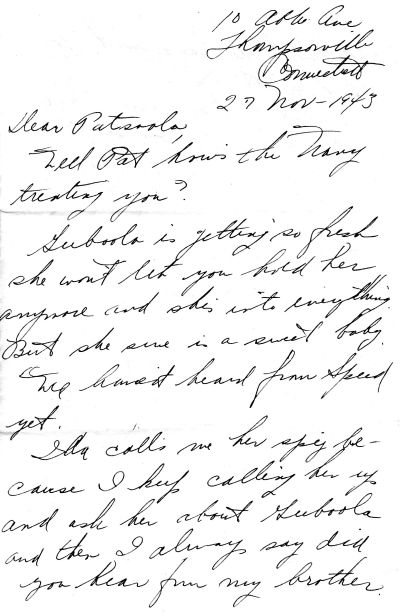 10 Ave
Thompsonville
Connecticut
27 Nov - 1943
Dear Patsoola,
Well Pat how's the Navy
treating you?
Guboola is getting so fresh
she won't let you hold her
anymore and she's into everything
But she sure is a sweet baby.
We haven't heard from Speed
yet.
Ida calls me her spig be-
cause I keep calling her up
and ask her about Guboola
and then I always say did
you hear from my brother.